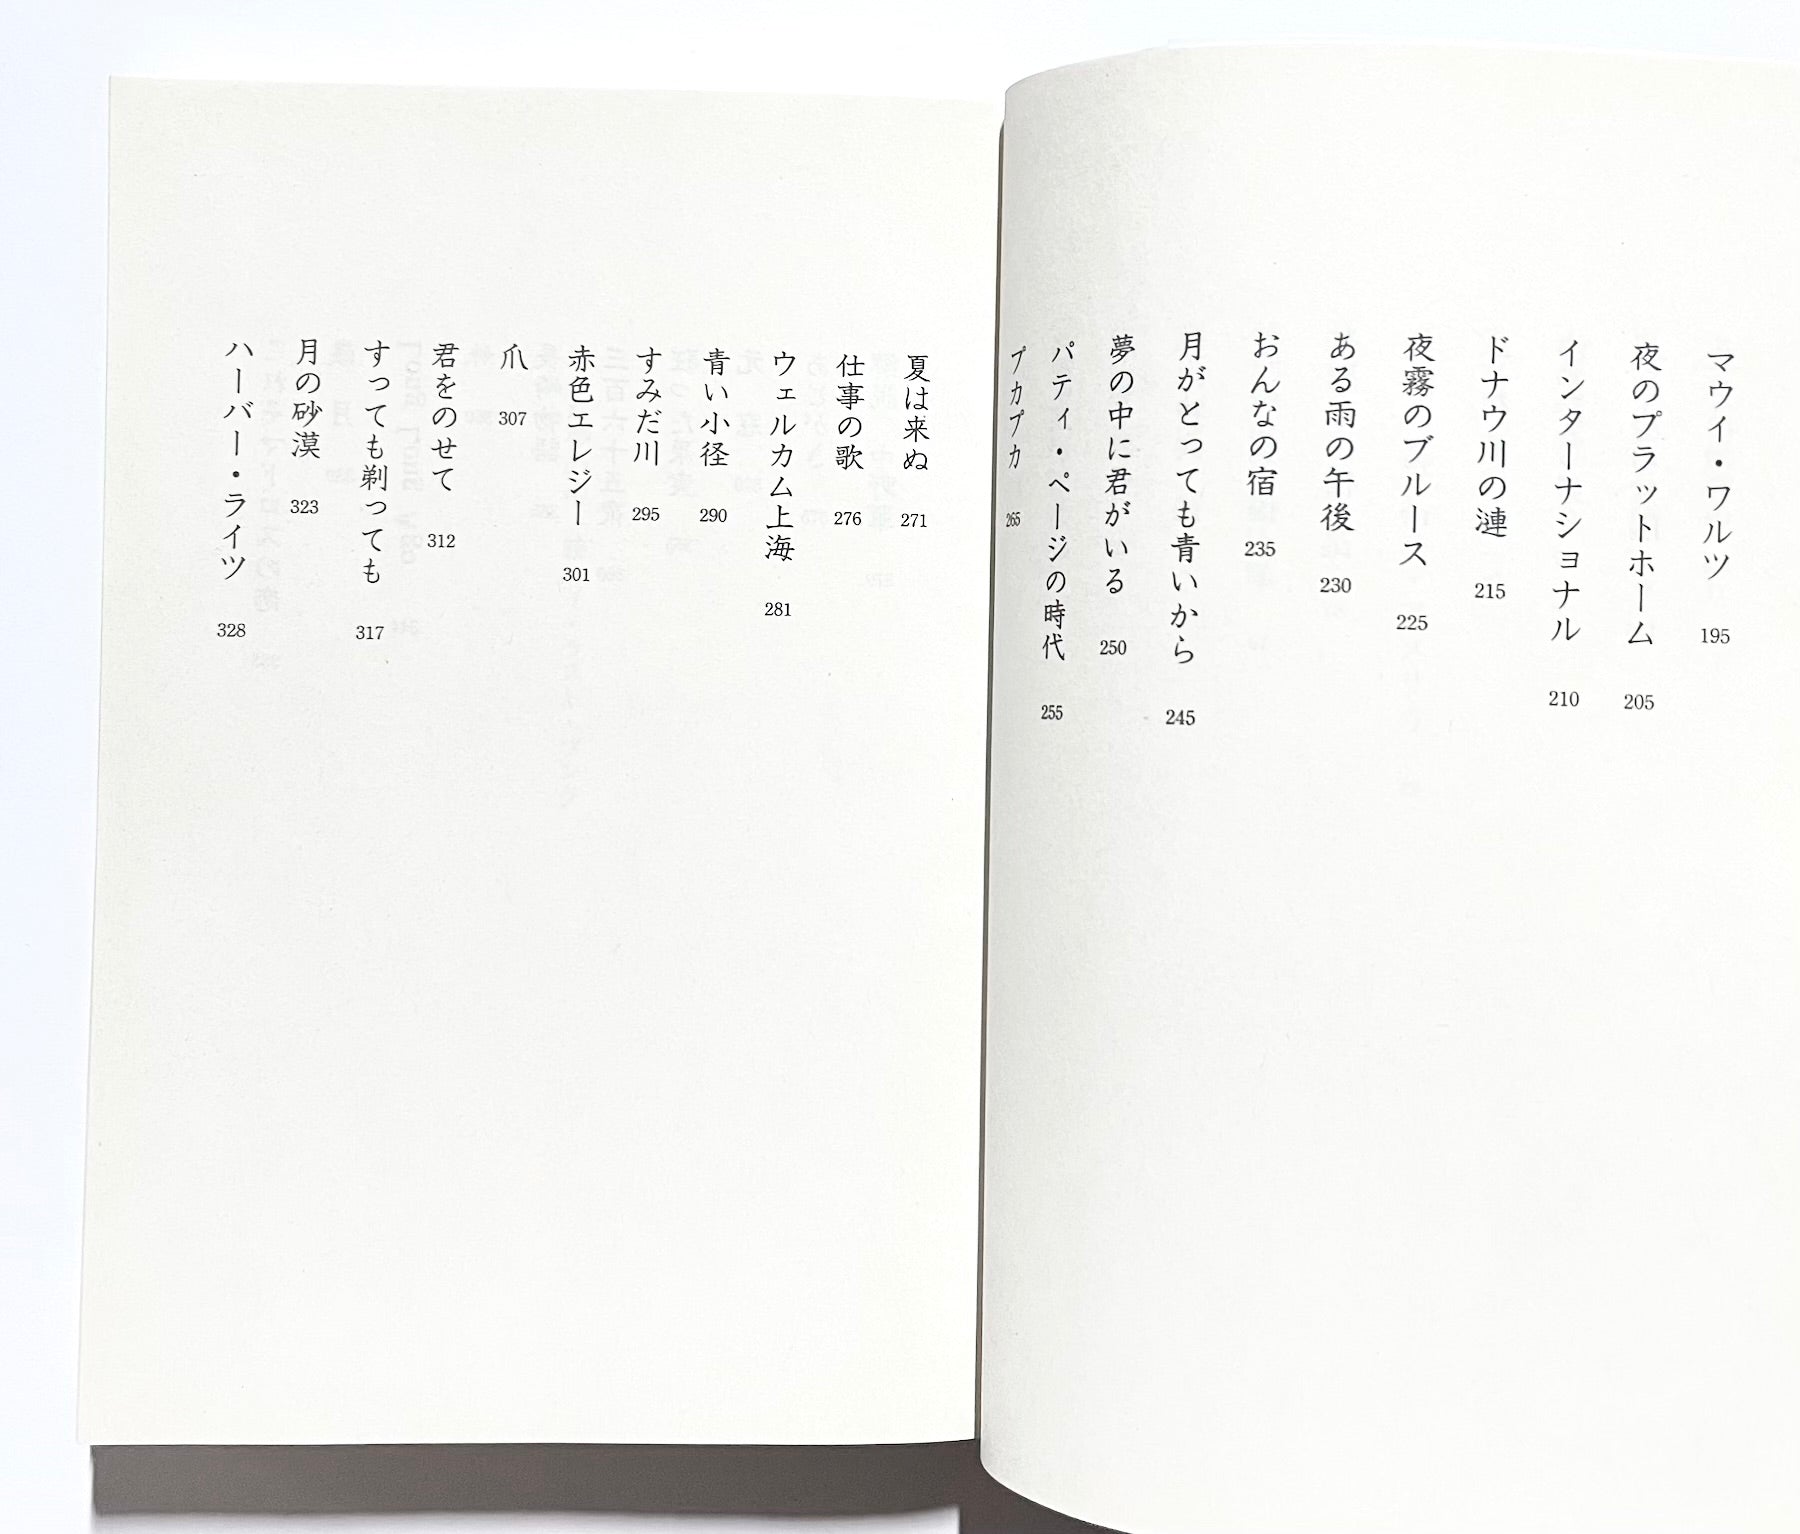 マウイ・ワルツ 195
夜のプラットホーム 205
インターナショナル 210
ドナウ川の漣 215
夜霧のブルース 225
ある雨の午後 230
おんなの宿 235
月がとっても青いから 245
夢の中に君がいる 250
パティ・ページの時代 255
プカプカ 265
夏は来ぬ 271
仕事の歌 276
ウェルカム上海 281
青い小径 290
すみだ川 295
赤色エレジー 301
爪 307
君をのせて 312
すっても剃っても 317
月の砂漠 323
ハーバー・ライツ 328